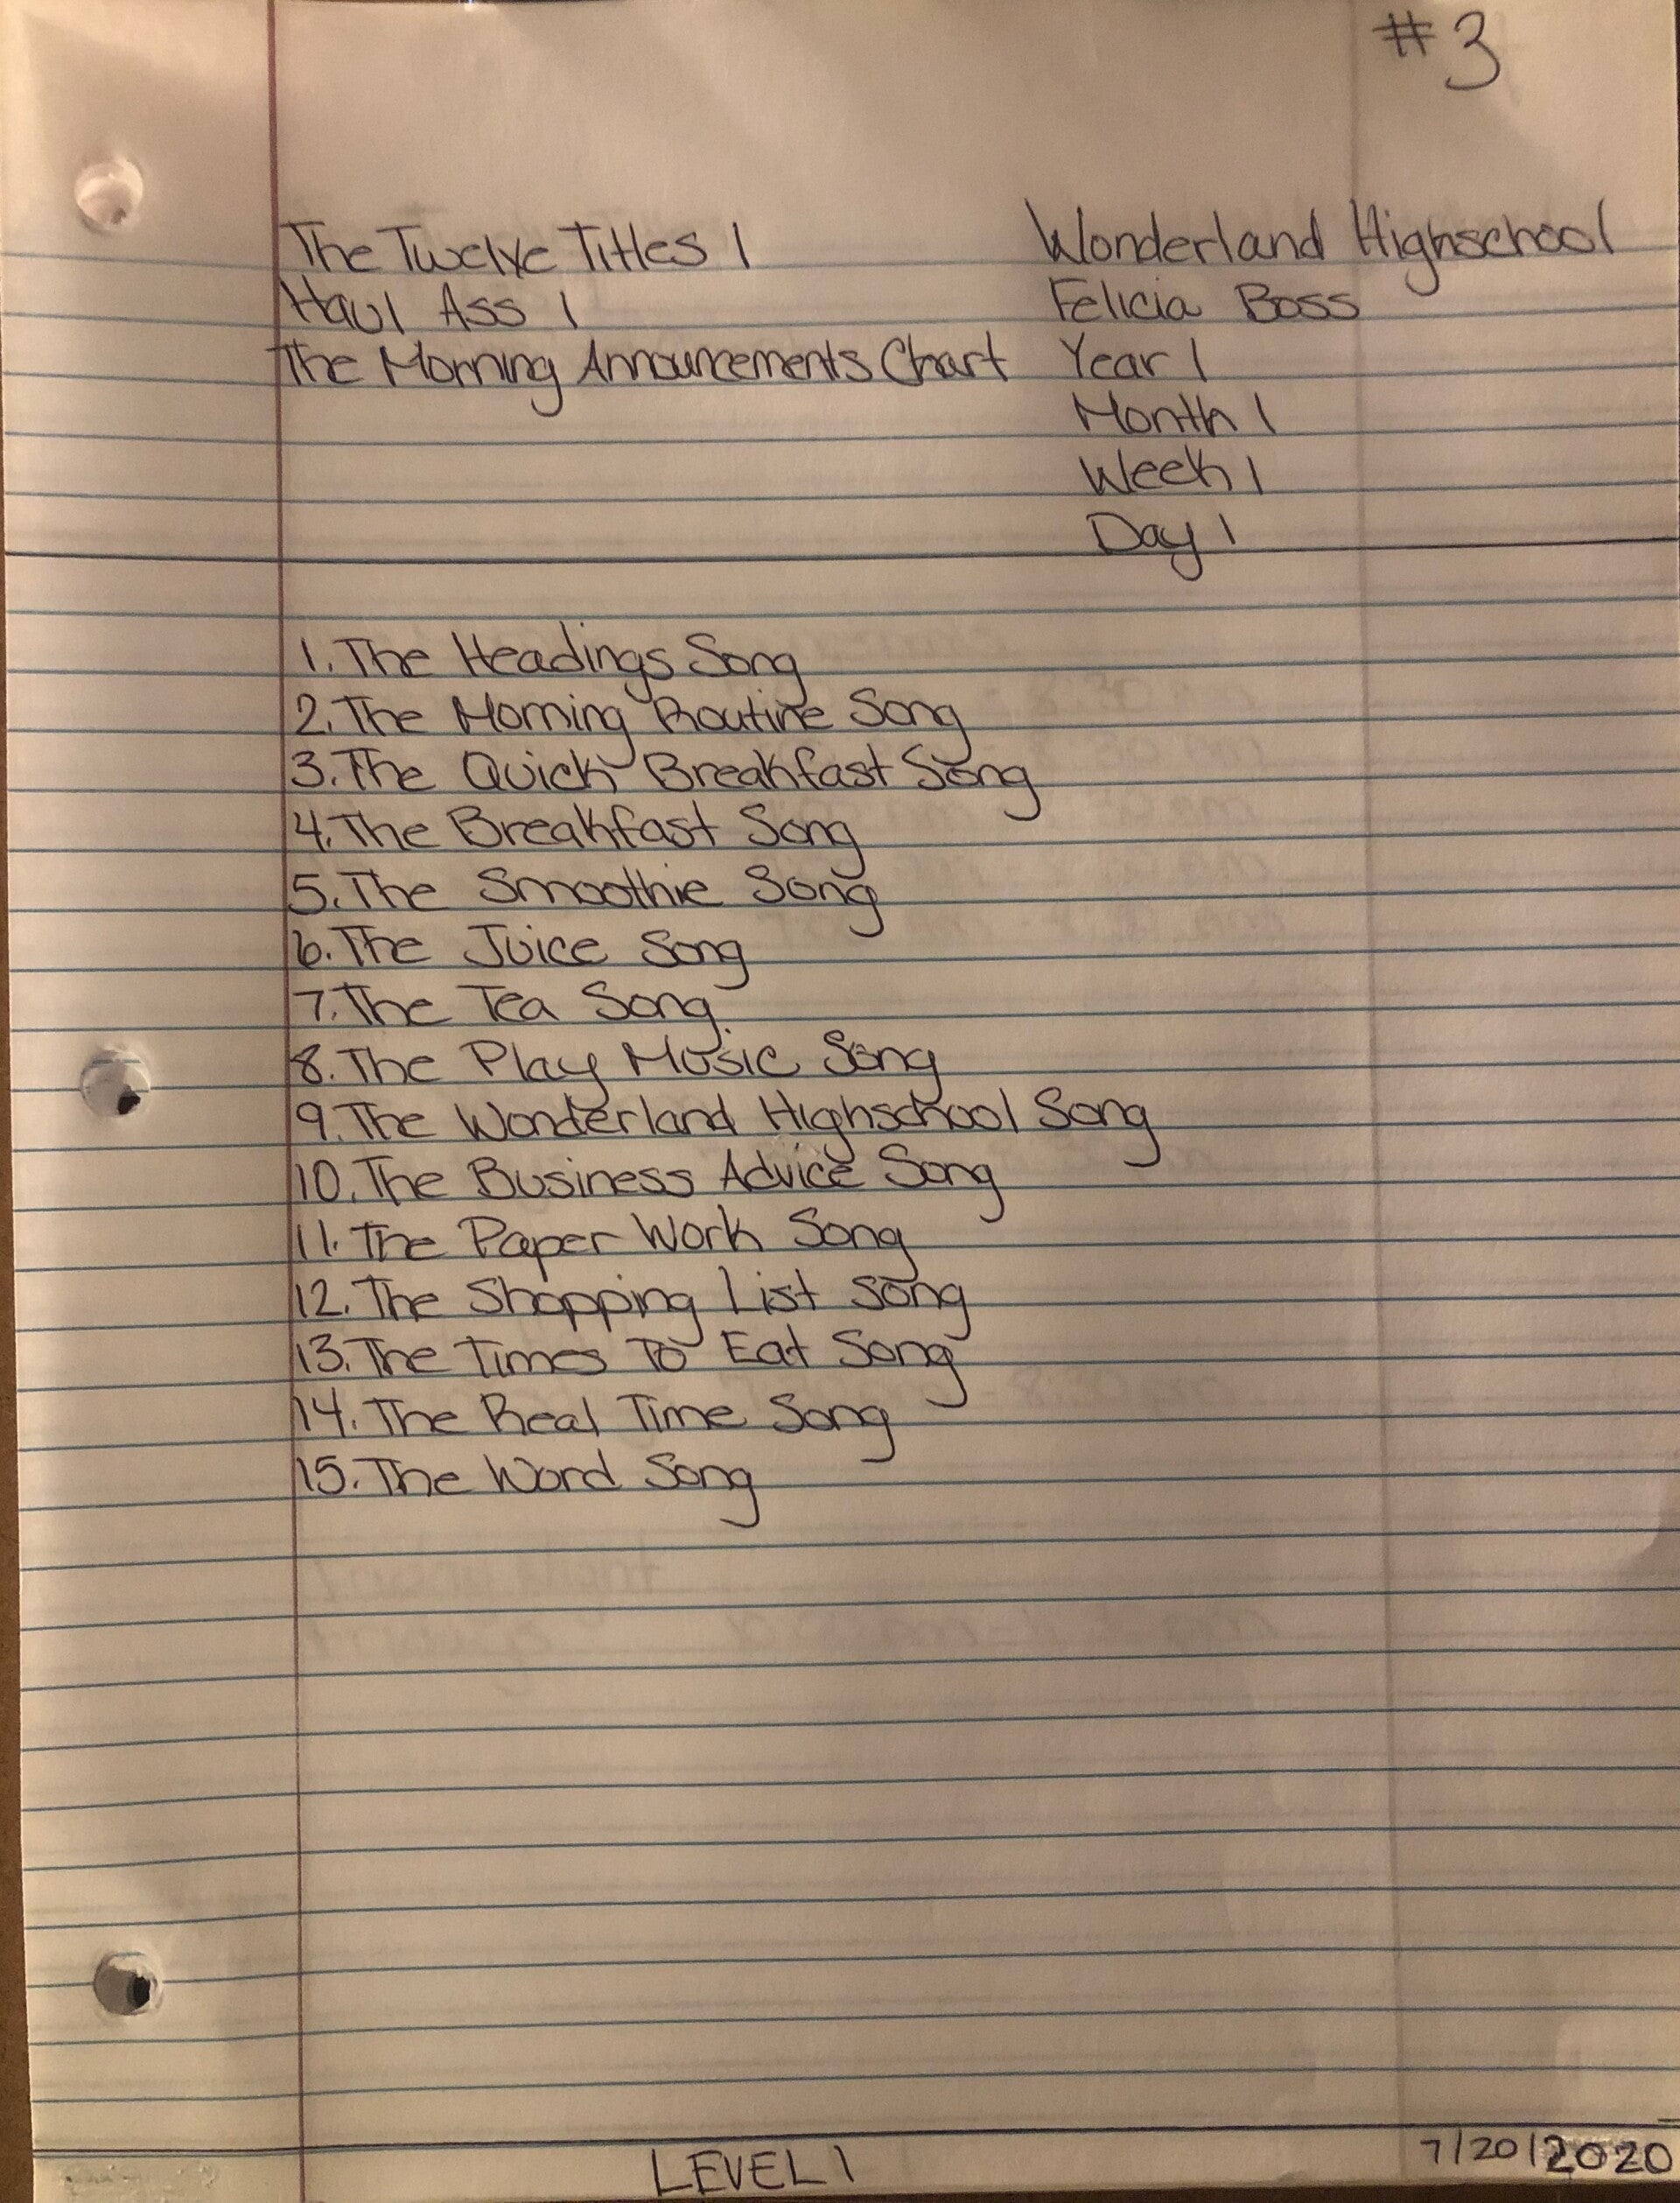 #3
The Twelve Titles 1
Wonderland Highschool
Haul Ass 1
Felicia Boss
The Morning Announcements Chart
Year 1
Month 1
Week 1
Day 1
1. The Headings Song
2. The Morning Routine Song
3. The Quick Breakfast Song
4. The Breakfast Song
5. The Smoothie Song
6. The Juice Song
7. The Tea Song
8. The Play Music Song
9. The Wonderland Highschool Song
10. The Business Advice Song
11. The Paper Work Song
12. The Shopping List Song
13. The Times To Eat Song
14. The Real Time Song
15. The Word Song
LEVEL 1
7/20/2020